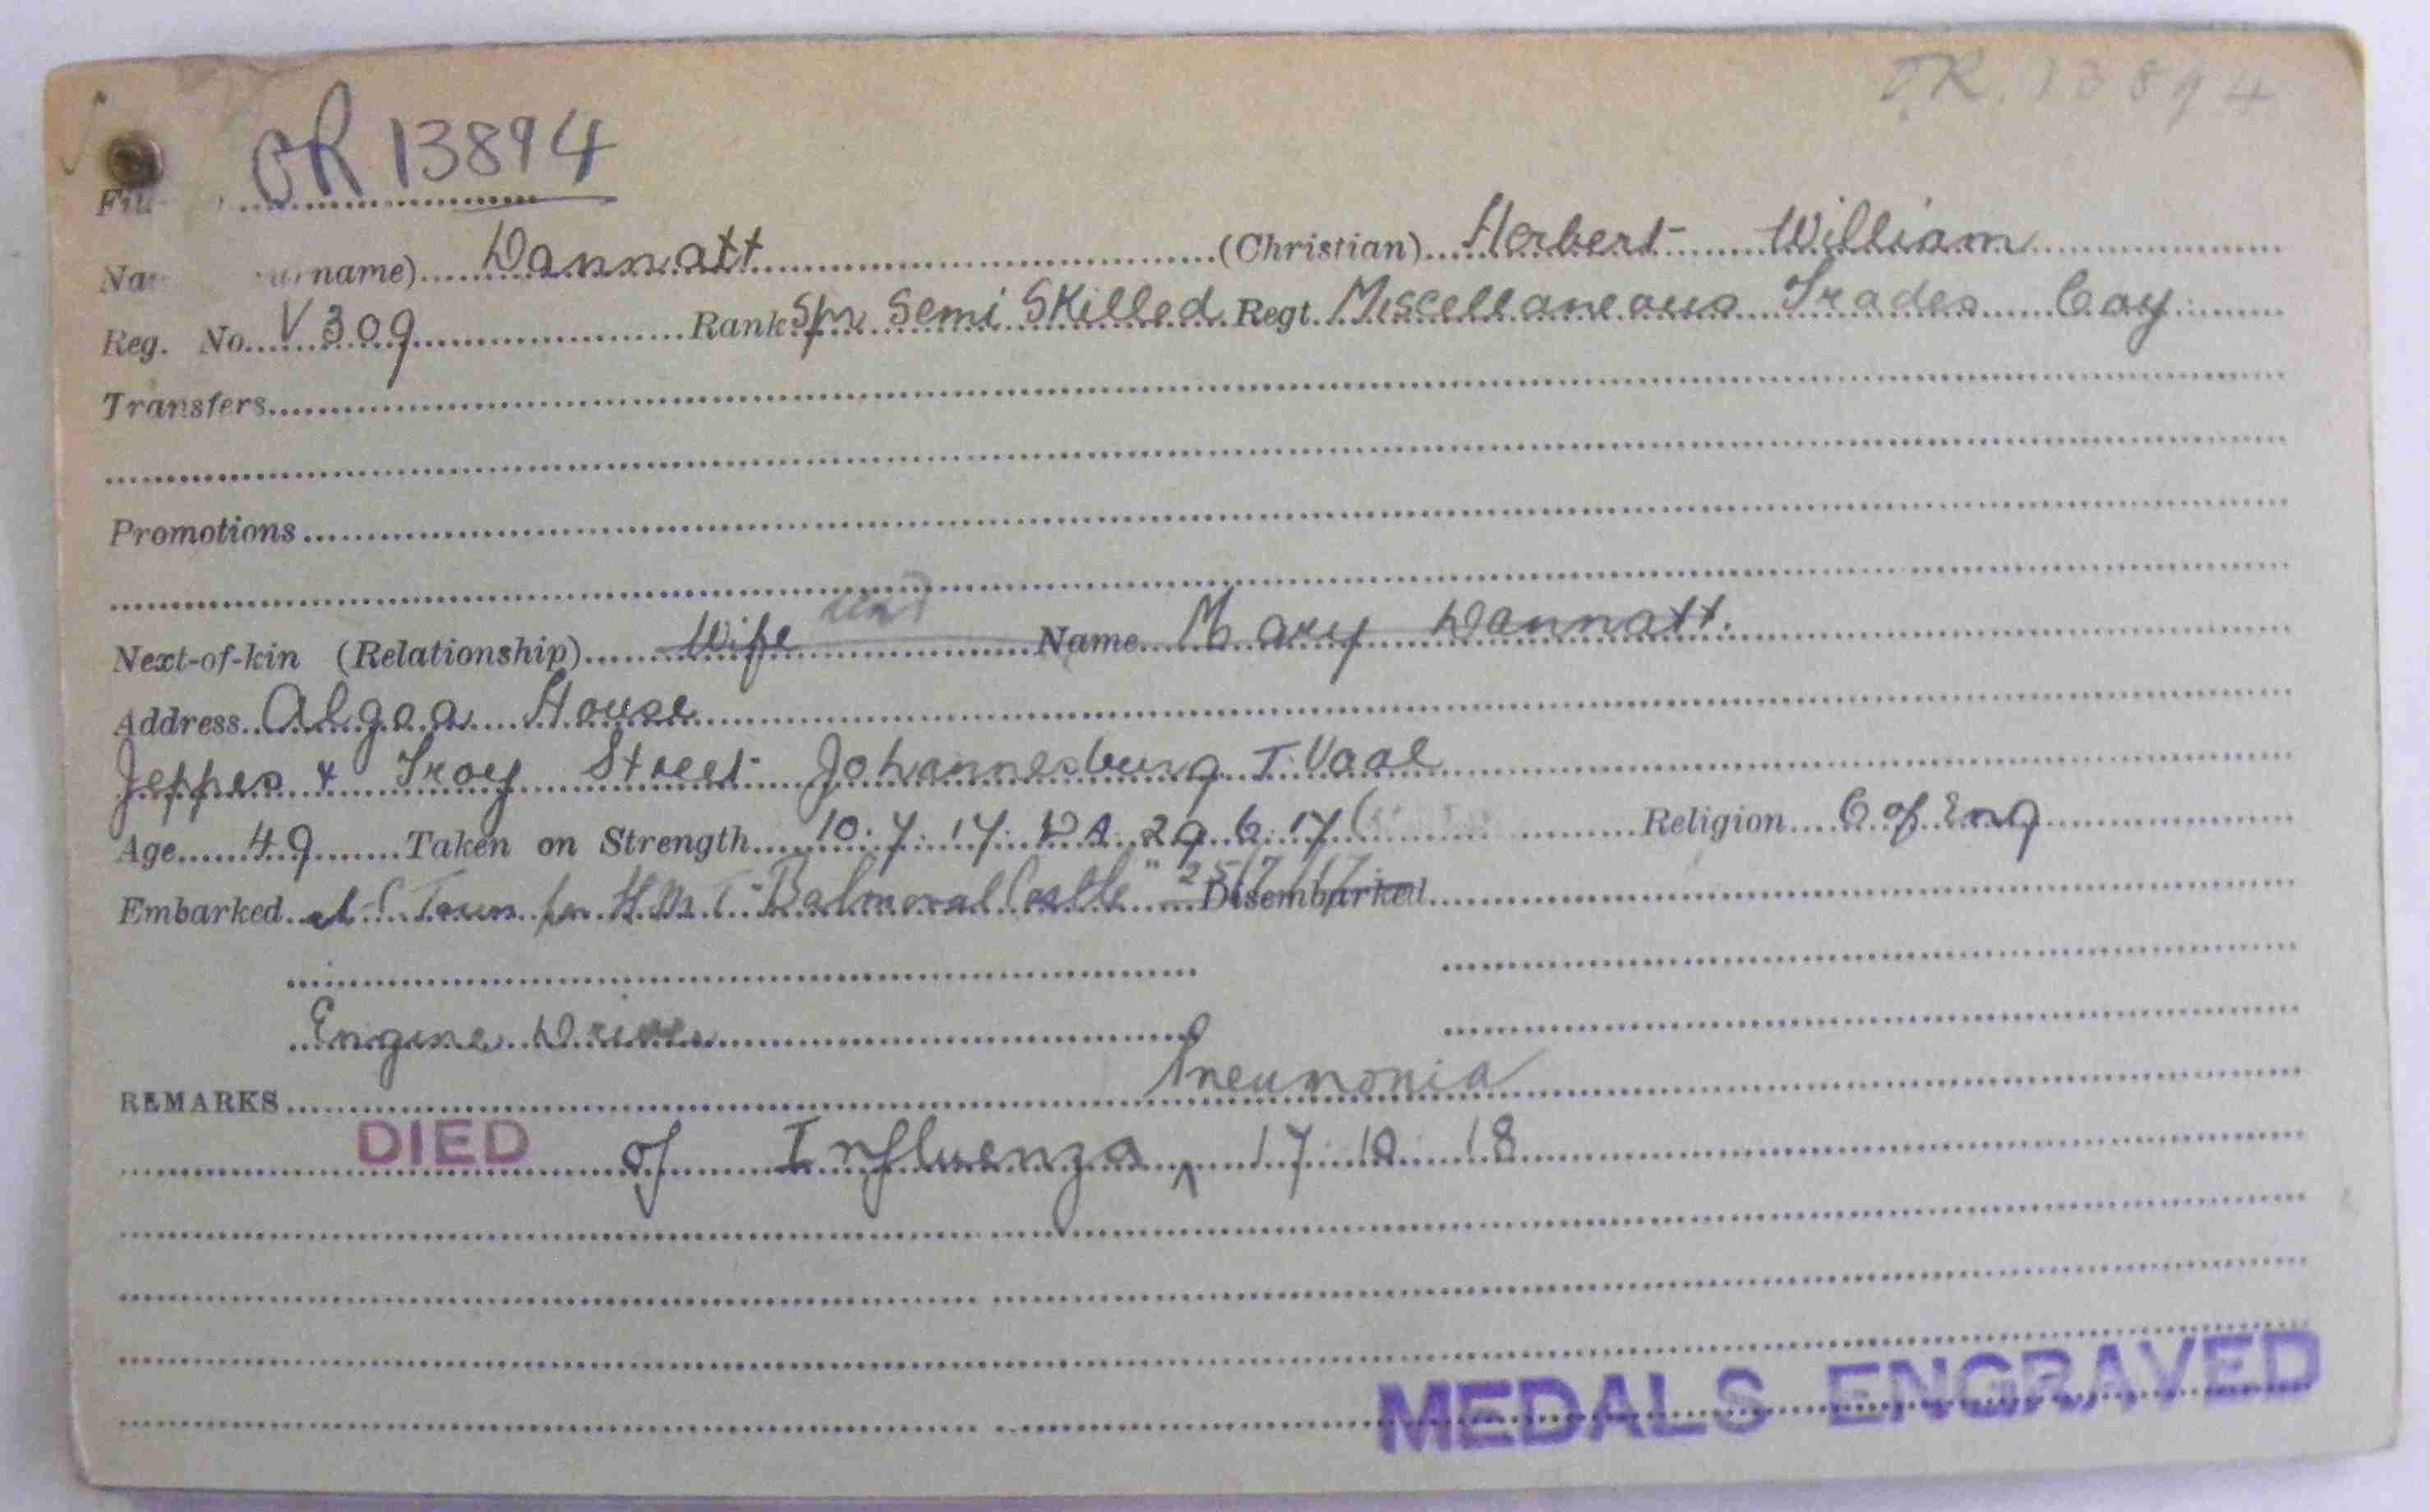 O.R. 13894
OR 13894
name) Dannatt (Christian) Herbert William
Reg. No. V 309 Rank Spr Semi Skilled Regt. Miscellaneous Trades Coy.
Transfers
Promotions
Next-of-kin (Relationship) Wife Name Mary Dannatt.
Address Algoa House
Jeppes & Troy Street Johannesburg T. Vaal
Age 49 Taken on Strength 10.7.17. 29.6.17 Religion C of Eng
Embarked at C. Town per H.M.T. "Balmoral Castle" 25/7/17. Disembarked
Engine Driver
Pneumonia
REMARKS
DIED of Influenza ^ 17.10.18
MEDALS ENGRAVED